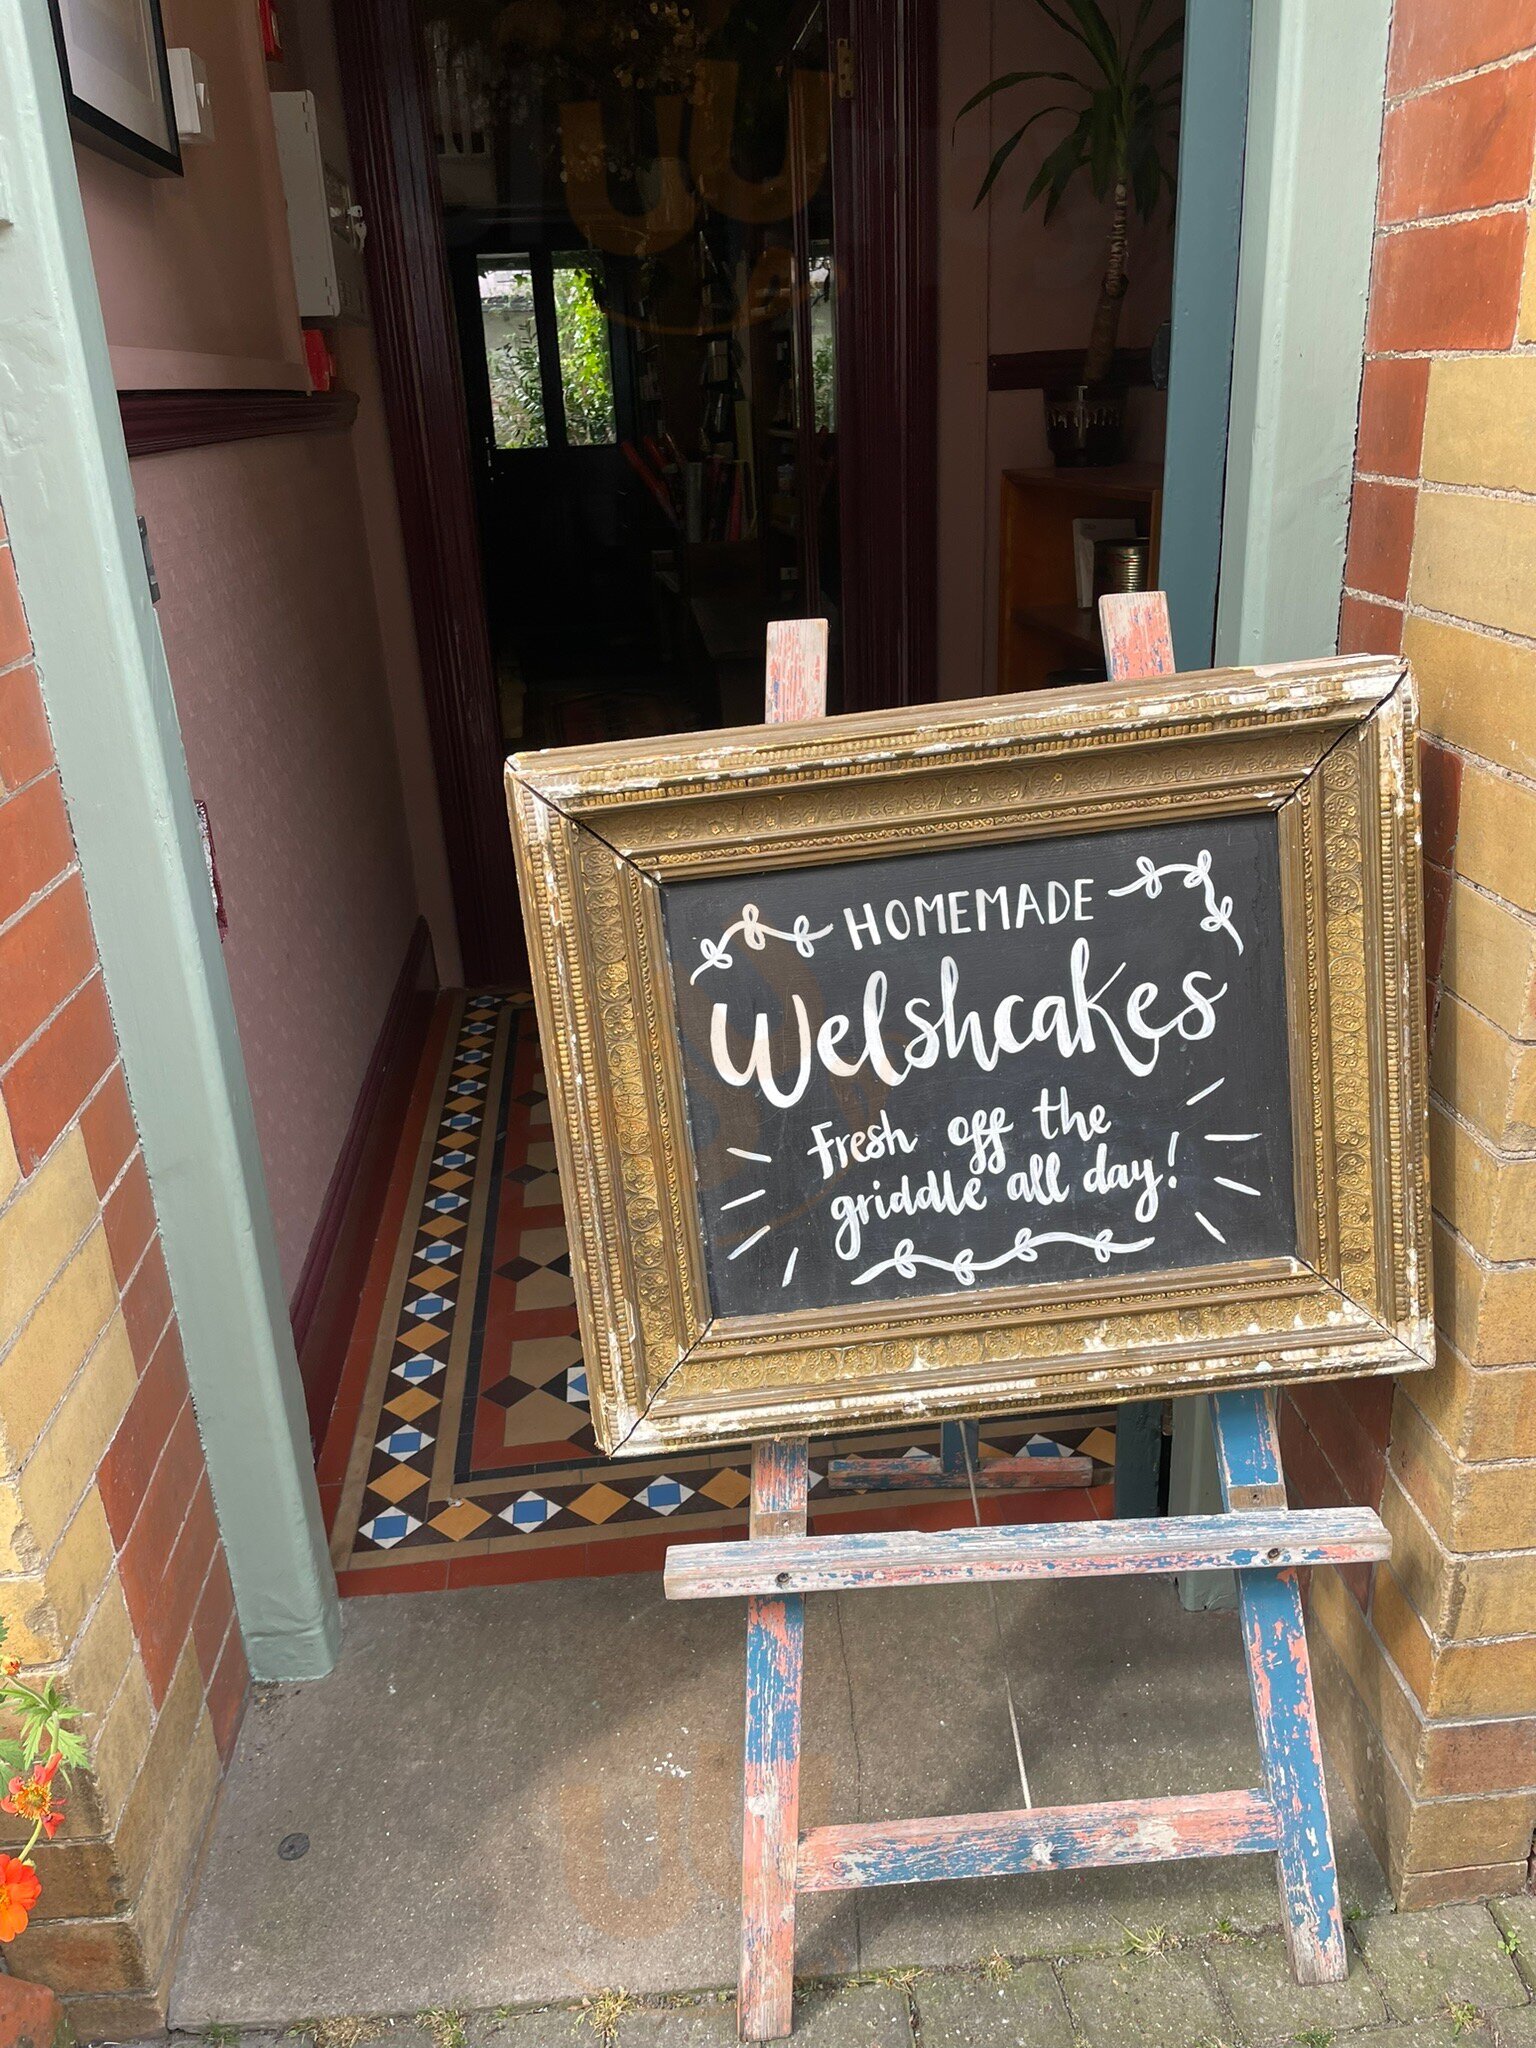 HOMEMADE
Welshcakes
Fresh off the
griddle all day!